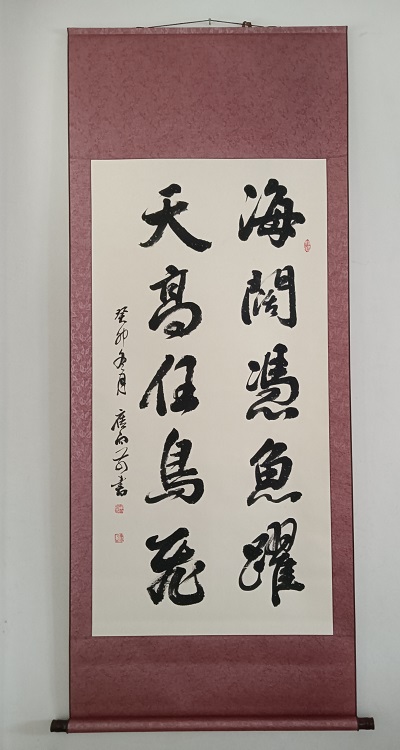 海闊憑魚躍
天高任鳥飛
癸卯冬月 书